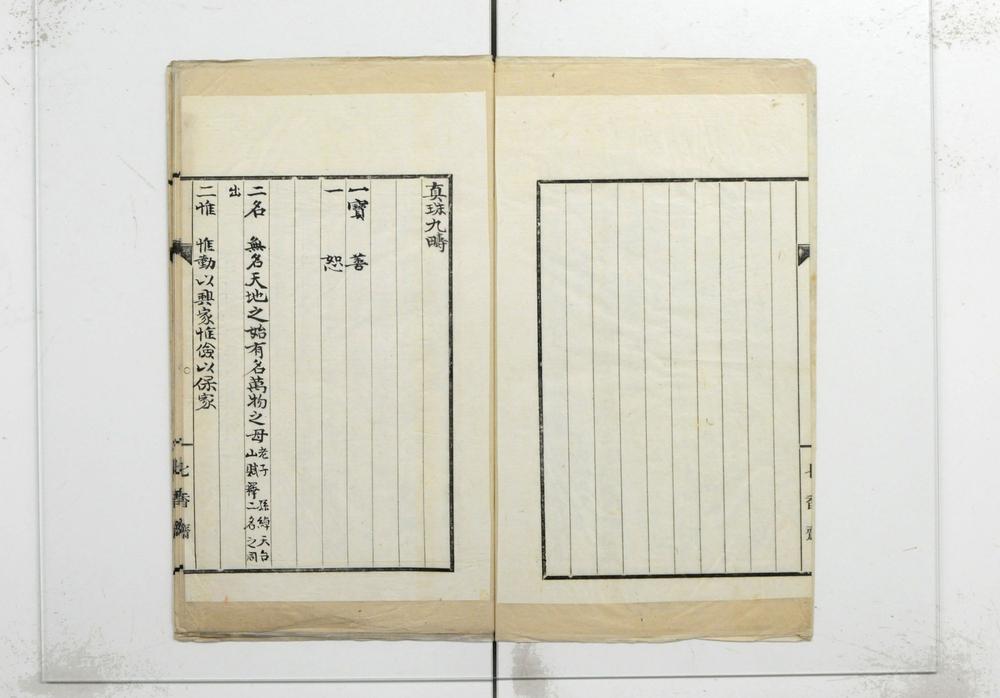 真珠九疇
一寶　善
一　恕
二名　無名天地之始有名萬物之母老子　孫綽天台山賦釋二名之同
出
二惟　惟勤以興家惟儉以保家
七香齋
七香齋